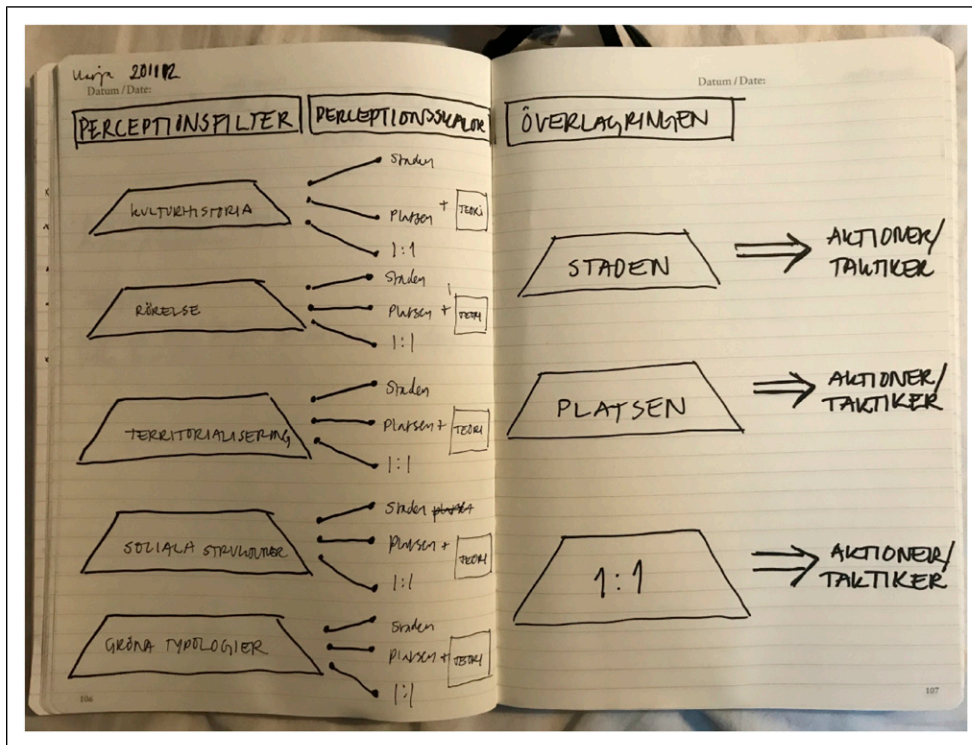 201112
Datum / Date:
PERCEPTIONSFILTER
PERCEPTIONSSKALOR
KULTURHISTORIA
Staden
Platsen + TEORI
1:1
RÖRELSE
Staden
Platsen + TEORI
1:1
TERRITORIALISERING
Staden
Platsen + TEORI
1:1
SOCIALA STRUKTURER
Staden platsen
Platsen + TEORI
1:1
GRÖNA TYPOLOGIER
Staden
Platsen + TEORI
1:1
106
Datum / Date:
ÖVERLAGRINGEN
STADEN
AKTIONER/
TAKTIKER
PLATSEN
AKTIONER/
TAKTIKER
1:1
AKTIONER/
TAKTIKER
107